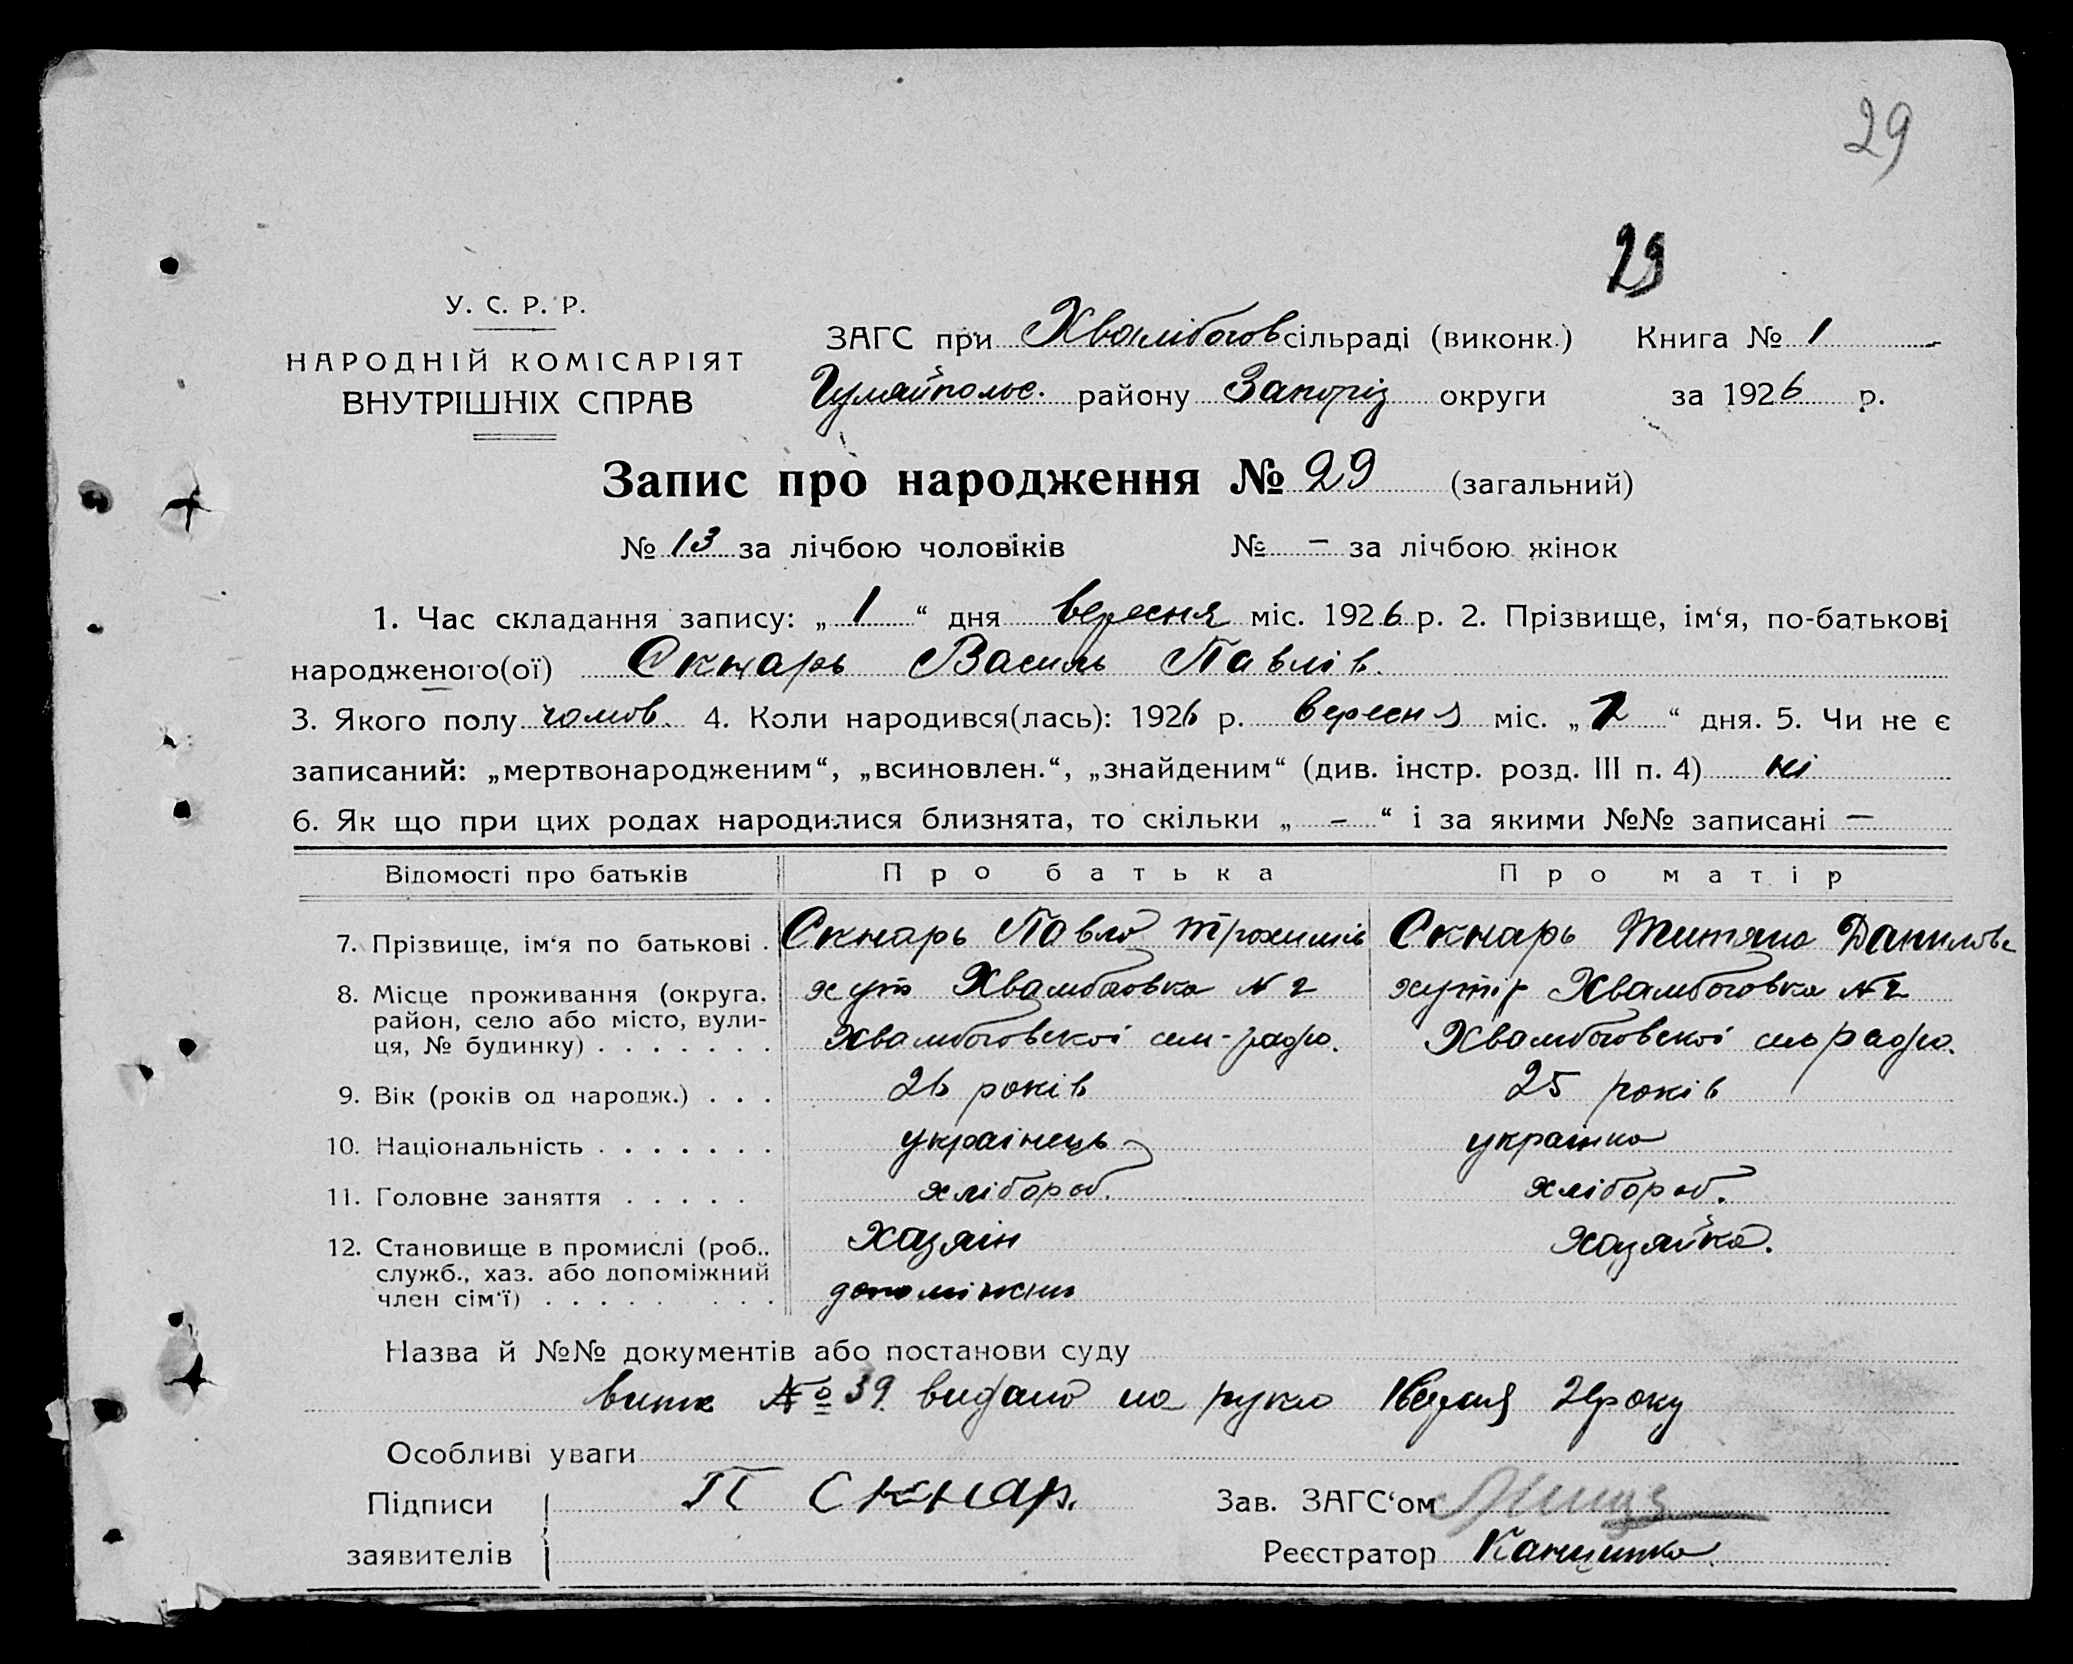 29
29
У. С. Р. Р.
НАРОДНІЙ КОМІСАРІЯТ
ВНУТРІШНІХ СПРАВ
ЗАГС при Хвалібогов сільраді (виконк.) Книга № 1 -
Гуляйпольс. району Запоріз округи за 1926 р.
Запис про народження № 29 (загальний)
№ 13 за лічбою чоловіків № - за лічбою жінок
1. Час складання запису: „ 1 “ дня вересня міс. 1926 р. 2. Прізвище, ім‘я, по-батькові
народженого(ої) Скнарь Василь Павлів.
3. Якого полу чолов. 4. Коли народився(лась): 1926 р. вересня міс. „ “ дня. 5. Чи не є
записаний: „мертвонародженим“, „всиновлен.“, „знайденим“ (див. інстр. розд. III п. 4) ні
6. Як що при цих родах народилися близнята, то скільки „ - “ і за якими №№ записані —
Відомості про батьків Про батька Про матір
7. Прізвище, ім‘я по батькові . Скнарь Павло Трохимів Скнарь Титяна Данилов
8. Місце проживання (округа, район, село або місто, вули- ця, № будинку) . . . . . . .
хут Хвалибоговка № 2 хутір Хвалибоговка № 2
Хвалибоговскоі сил-радю. Хвалибоговскоі сил радю.
9. Вік (років од народж.) . . . 26 років 25 років
10. Національність . . . . . . . українець українка
11. Головне заняття . . . . . хлібороб. хлібороб.
12. Становище в промислі (роб., служб., хаз. або допоміжний член сім‘ї) . . . . . . . .
Хазяін хазяйка.
допоміжни
Назва й №№ документів або постанови суду
витк № 39 видано на руки року
Особливі уваги
Підписи П Скнар. Зав. ЗАГС‘ом
заявителів Реєстратор